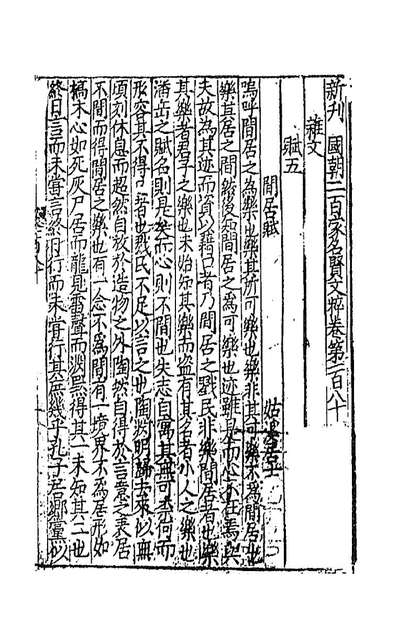 新刊國朝二百家名賢文粹卷第一百八十
雜文
賦五
閒居賦 姑溪居士
嗚呼閒居之為樂也樂其跡可樂也樂非其可樂不為閒居也
樂其居之間然後知閒居之為可樂也迹雖是而心不在焉與
夫故為其迹而資以藉口者乃閒居之戮民非樂閒居者也樂
其樂者君子之樂也未始知其樂而盜有其名者小人之樂也
潘岳之賦名則是矣而心則不間也失志自寓其無可柰何而
形容其不得已者也戮民不足以言之也陶淵明歸去來以無
頃刻休息而超然自放於造物之外陶然自得於言意之表居
不間而得閒居之樂也有一念不為間有一境界不為居形如
槁木心如死灰尸居而龍見雷聲而淵默得其一未知其二也
終日言而未嘗言終身行而未嘗行其庶幾乎孔子居鄉黨似